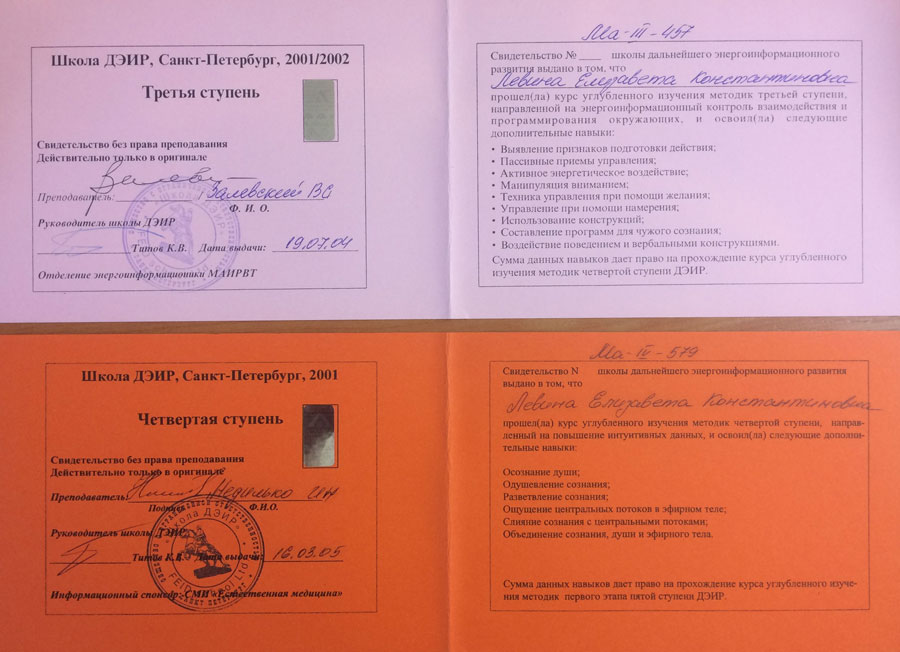 Школа ДЭИР, Санкт-Петербург, 2001/2002
Третья ступень
Свидетельство без права преподавания
Действительно только в оригинале
Преподаватель: Залевский ВС
Ф. И. О.
Руководитель школы ДЭИР
Титов К.В. Дата выдачи: 19.07.04
Отделение энергоинформационики МАИРВТ
Ма-III-457
Свидетельство № школы дальнейшего энергоинформационного
развития выдано в том, что
Левина Елизавета Константиновна
прошел(ла) курс углубленного изучения методик третьей ступени,
направленной на энергоинформационный контроль взаимодействия и
программирования окружающих, и освоил(ла) следующие
дополнительные навыки:
• Выявление признаков подготовки действия;
• Пассивные приемы управления;
• Активное энергетическое воздействие;
• Манипуляция вниманием;
• Техника управления при помощи желания;
• Управление при помощи намерения;
• Использование конструкций;
• Составление программ для чужого сознания;
• Воздействие поведением и вербальными конструкциями.
Сумма данных навыков дает право на прохождение курса углубленного
изучения методик четвертой ступени ДЭИР.
Школа ДЭИР, Санкт-Петербург, 2001
Четвертая ступень
Свидетельство без права преподавания
Действительно только в оригинале
Преподаватель:
Подпись Ф.И.О.
Руководитель школы ДЭИР
Титов К.В. Дата выдачи: 16.03.05
Информационный спонсор: СМИ «Естественная медицина»
Школа ДЭИР
Ма-IV-579
Свидетельство N школы дальнейшего энергоинформационного развития
выдано в том, что
Левина Елизавета Константиновна
прошел(ла) курс углубленного изучения методик четвертой ступени, направ-
ленный на повышение интуитивных данных, и освоил(ла) следующие дополни-
тельные навыки:
Осознание души;
Одушевление сознания;
Разветвление сознания;
Ощущение центральных потоков в эфирном теле;
Слияние сознания с центральными потоками;
Объединение сознания, души и эфирного тела.
Сумма данных навыков дает право на прохождение курса углубленного изуче-
ния методик первого этапа пятой ступени ДЭИР.